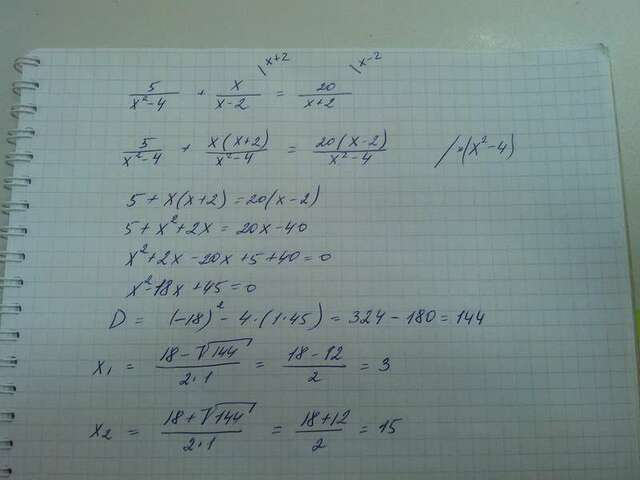 5/(x²-4) + x/(x-2) \x+2 = 20/(x+2) \x-2
5/(x²-4) + x(x+2)/(x²-4) = 20(x-2)/(x²-4) /·(x²-4)
5 + x(x+2) = 20(x-2)
5 + x² + 2x = 20x - 40
x² + 2x - 20x + 5 + 40 = 0
x² - 18x + 45 = 0
D = (-18)² - 4·(1·45) = 324 - 180 = 144
x₁ = (18 - √144)/(2·1) = (18 - 12)/2 = 3
x₂ = (18 + √144)/(2·1) = (18 + 12)/2 = 15